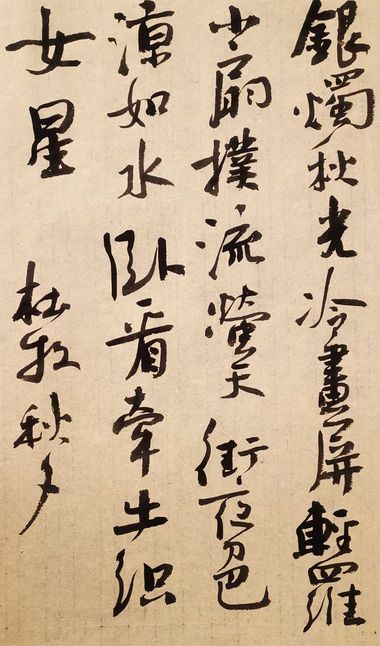 銀燭秋光冷畫屏輕羅
小扇撲流螢天街夜色
涼如水卧看牽牛织
女星
杜牧秋夕